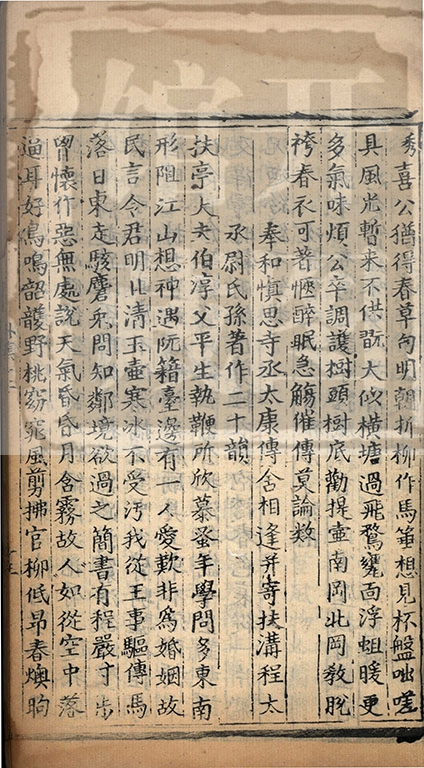 秀喜公猶得春草句明朝折柳作馬箠想見杯盤咄嗟
具風光暫来不供翫大似橫塘過飛鶩甕面浮蛆暖更
多氣味煩公卒調護樹頭樹底勸提壺南岡北岡教脫
袴春衣可著㥦醉眠急觴催傳莫論数
奉和慎思寺丞太康傳舍相逢并寄扶溝程太
丞尉氏孫著作二十韻
扶亭大夫伯淳父平生執鞭所欣慕蚤年學問多東南
形阻江山想神遇阮籍臺邊有一人愛歎非爲婚姻故
民言令君明且清玉壺寒冰不受汚我從王事驅傳馬
落日東走駭麏兎問知鄰境欲過之簡書有程嚴寸步
胷懷作惡無處說天氣昏昏月含霧故人如從空中落
逼耳好鳥鳴韶頀野桃窈窕風剪拂官柳低昂春燠昫